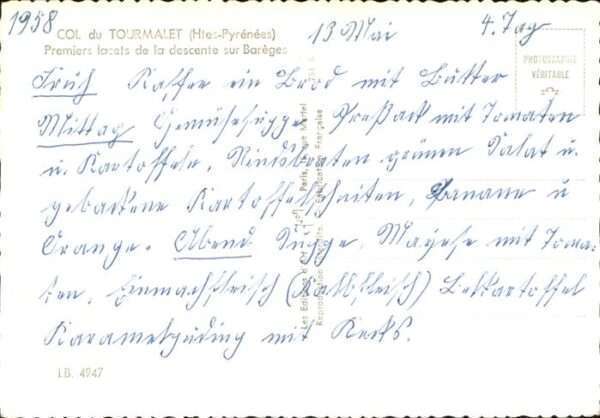 1958
COL du TOURMALET (Htes-Pyrénées)
Premiers lacets de la descente sur Barèges
13 Mai 4. Tag
PHOTOGRAPHIE
VÉRITABLE
Früh Kaffee ein Brod mit Butter
Mittag Gemüsesuppe Preßack mit Tomaten
u. Kartoffeln, Rindsbraten grünen Salat u.
gebackene Kartoffelscheiten, Banane u
Orange. Abend Suppe, Mayese mit Toma-
ten, Einmachfleisch (Kalbfleisch) Kartoffel
Karamelpuding mit Keks.
Reproduction Interdite. Fabrication Française
I.B. 4947